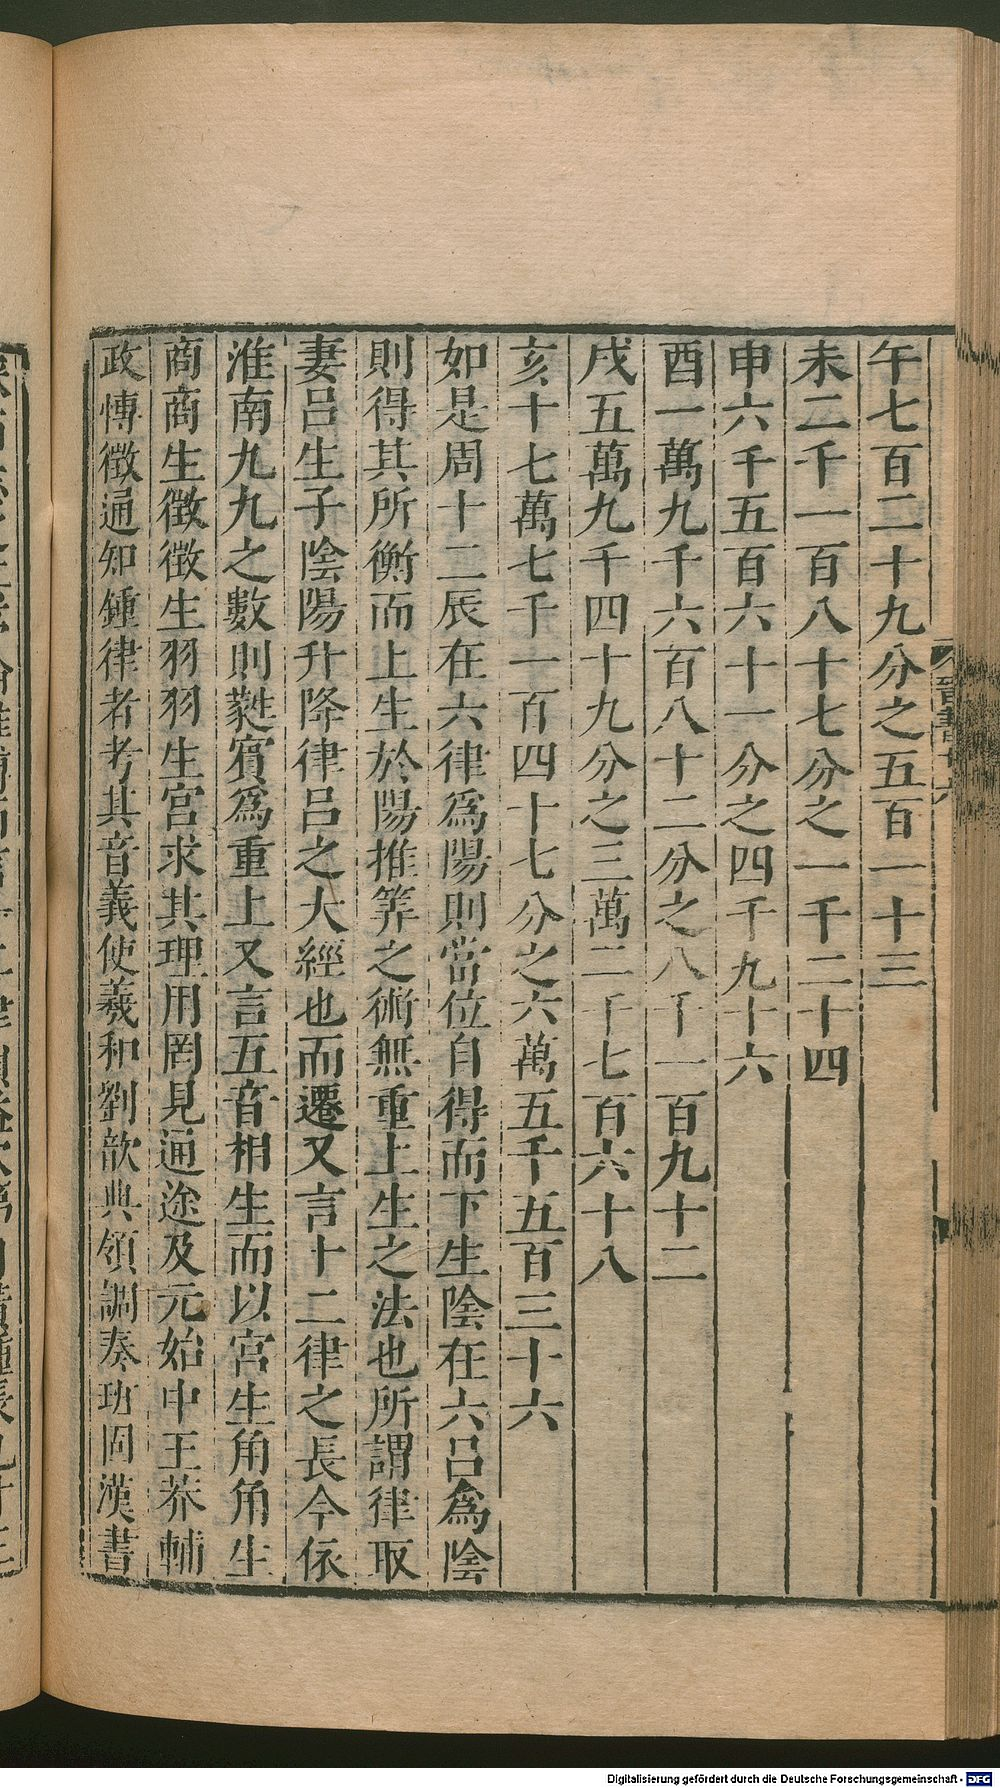 午七百二十九分之五百一十三
未二千一百八十七分之一千二十四
申六千五百六十一分之四千九十六
酉一萬九千六百八十二分之八千一百九十二
戌五萬九千四十九分之三萬二千七百六十八
亥十七萬七千一百四十七分之六萬五千五百三十六
如是周十二辰在六律爲陽則當位自得而下生陰在六呂爲陰
則得其所衡而上生於陽推筭之術無重上生之法也所謂律取
妻呂生子陰陽升降律呂之大經也而遷又言十二律之長今依
淮南九九之數則蕤賓爲重上又言五音相生而以宮生角角生
商商生徵徵生羽羽生宮求其理用罔見通途及元始中王莽輔
政慱徵通知鍾律者考其音義使羲和劉歆典領調奏班固漢書
晉書十六
Digitalisierung gefördert durch die Deutsche Forschungsgemeinschaft - DFG